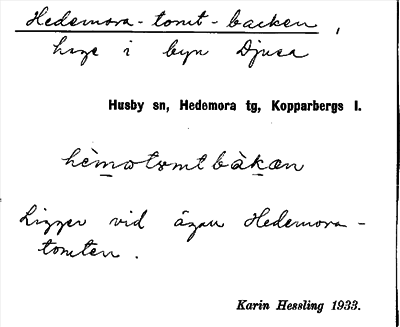 Hedemora-tomt-backen,
hage i byn Djusa
Husby sn, Hedemora tg, Kopparbergs l.
hèmotomt bàkæn
Ligger vid ägan Hedemora-
tomten.
Karin Hessling 1933.